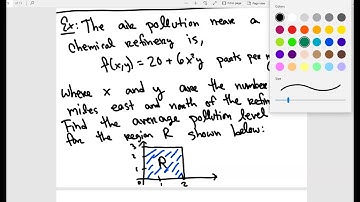 Ex: The air pollution near a
chemical refinery is,
f(x,y) = 20 + 6x²y parts per
where x and y are the number
miles east and north of the
Find the average pollution level
for the region R shown below:
Colors
Size
3
2
1
R
0
1
2